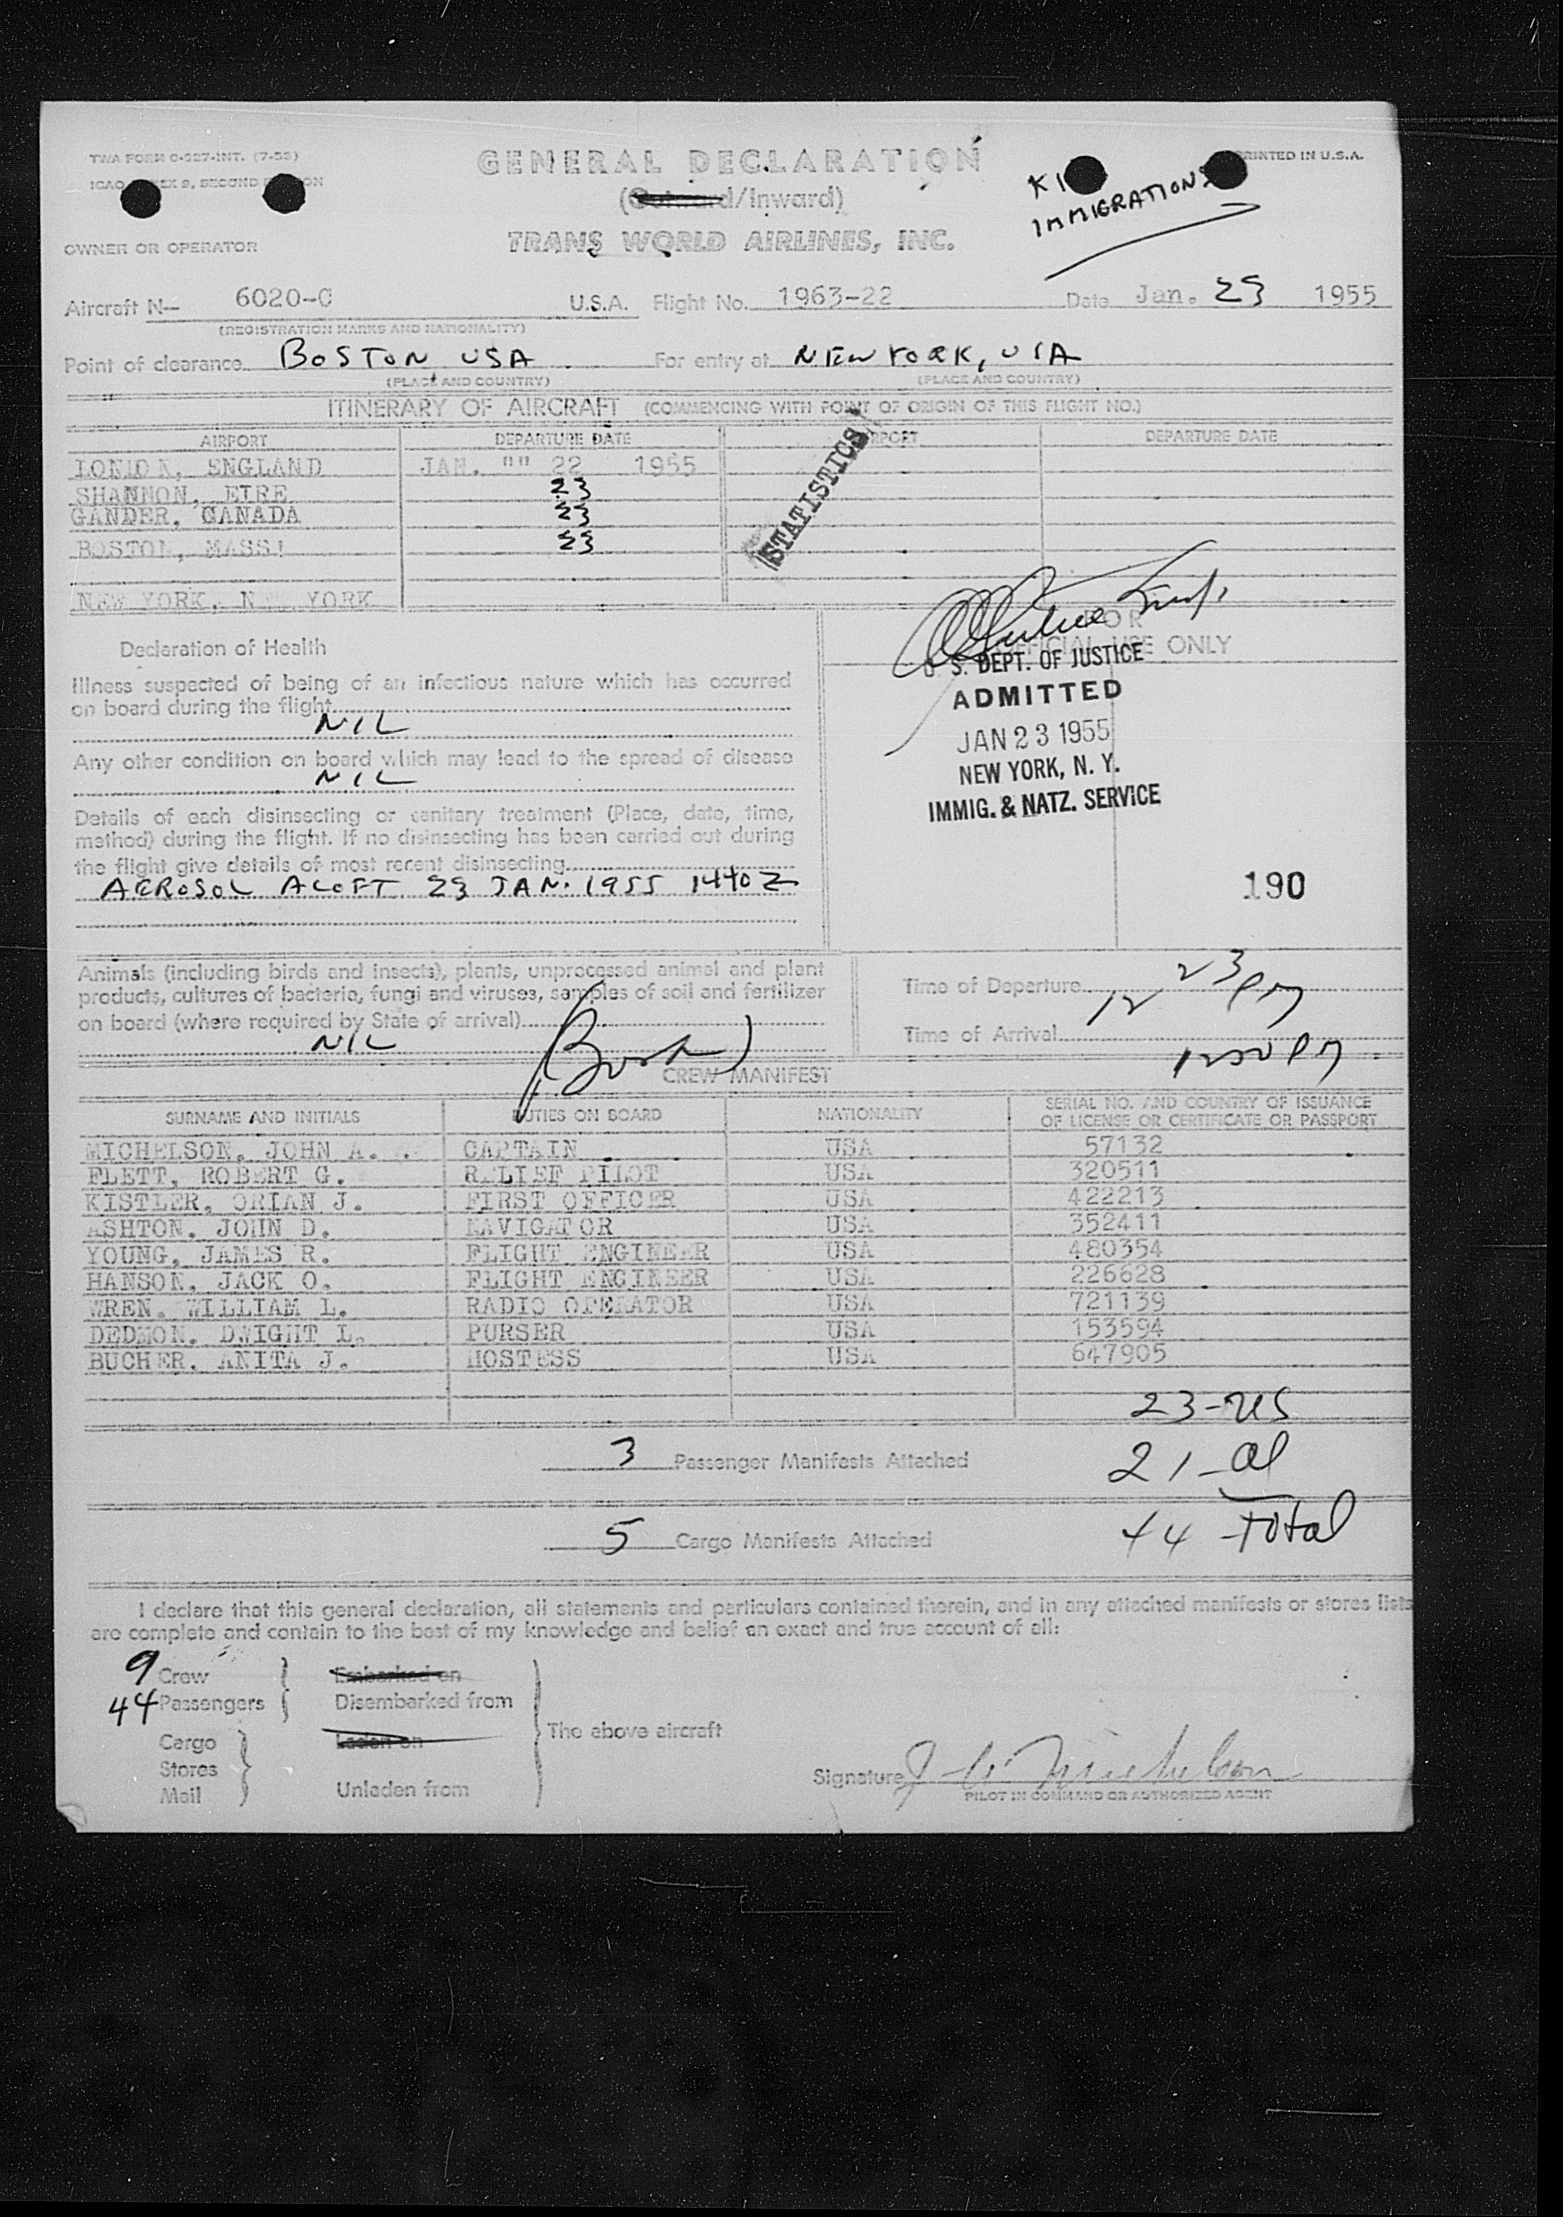 TWA FORM O-527-INT. (7-53)
GENERAL DECLARATION
PRINTED IN U.S.A.
SECOND
(Outward/Inward)
IMMIGRATIONS
OWNER OR OPERATOR
TRANS WORLD AIRLINES, INC.
Aircraft N— 6020-C U.S.A. Flight No. 1963-22 Date Jan. 23 1955
(REGISTRATION MARKS AND NATIONALITY)
Point of clearance BOSTON USA For entry at NEW YORK, USA
(PLACE AND COUNTRY) (PLACE AND COUNTRY)
ITINERARY OF AIRCRAFT (COMMENCING WITH POINT OF ORIGIN OF THIS FLIGHT NO.)
AIRPORT DEPARTURE DATE AIRPORT DEPARTURE DATE
LONDON, ENGLAND JAN. "" 22 1955
SHANNON, EIRE 23
GANDER, CANADA 23
BOSTON, MASS! 23
NEW YORK, NEW YORK
STATISTICS
Declaration of Health
FOR
OFFICIAL USE ONLY
Illness suspected of being of an infectious nature which has occurred
on board during the flight
NIL
Any other condition on board which may lead to the spread of disease
NIL
Details of each disinsecting or sanitary treatment (Place, date, time,
method) during the flight. If no disinsecting has been carried out during
the flight give details of most recent disinsecting
AEROSOL ALOFT 23 JAN. 1955 1440Z
U. S. DEPT. OF JUSTICE
ADMITTED
JAN 23 1955
NEW YORK, N. Y.
IMMIG. & NATZ. SERVICE
190
Animals (including birds and insects), plants, unprocessed animal and plant
products, cultures of bacteria, fungi and viruses, samples of soil and fertilizer
on board (where required by State of arrival)
NIL
Time of Departure 12 23 PM
Time of Arrival 1250 PM
CREW MANIFEST
SURNAME AND INITIALS DUTIES ON BOARD NATIONALITY SERIAL NO. AND COUNTRY OF ISSUANCE
OF LICENSE OR CERTIFICATE OR PASSPORT
MICHELSON, JOHN A. CAPTAIN USA 57132
FLETT, ROBERT G. RELIEF PILOT USA 320511
KISTLER, ORIAN J. FIRST OFFICER USA 422213
ASHTON, JOHN D. NAVIGATOR USA 352411
YOUNG, JAMES R. FLIGHT ENGINEER USA 480354
HANSON, JACK O. FLIGHT ENGINEER USA 226628
WREN, WILLIAM L. RADIO OPERATOR USA 721139
DEDMON, DWIGHT L. PURSER USA 153594
BUCHER, ANITA J. HOSTESS USA 647905
23-US
3 Passenger Manifests Attached 21-al
5 Cargo Manifests Attached 44 Total
I declare that this general declaration, all statements and particulars contained therein, and in any attached manifests or stores lists
are complete and contain to the best of my knowledge and belief an exact and true account of all:
9 Crew Embarked on
44 Passengers Disembarked from
Cargo Laden on The above aircraft
Stores
Mail Unladen from
Signature J A Michelson
PILOT IN COMMAND OR AUTHORIZED AGENT